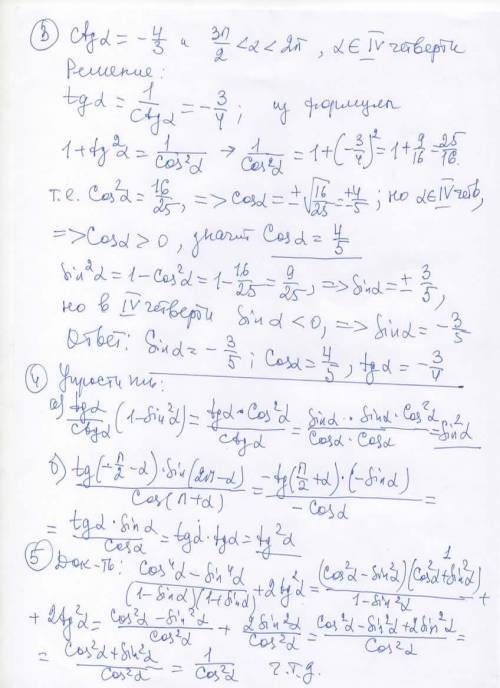 ③ Ctgα = -4/3 и 3π/2 < α < 2π, α ∈ IV четверти
Решение:
tgα = 1/Ctgα = -3/4; из формулы
1+tg²α = 1/Cos²α → 1/Cos²α = 1+(-3/4)² = 1+9/16 = 25/16.
т.е. Cos²α = 16/25, => Cosα = ±√16/25 = ±4/5; но α∈IV четв,
=> Cosα > 0, значит Cosα = 4/5
Sin²α = 1-Cos²α = 1-16/25 = 9/25, => Sinα = ± 3/5,
но в IV четверти Sinα < 0, => Sinα = -3/5
Ответ: Sinα = -3/5; Cosα = 4/5, tgα = -3/4
④ Упростить:
а) tgα/Ctgα (1-Sin²α) = tgα·Cos²α/Ctgα = Sinα·Sinα·Cos²α/Cosα·Cosα = Sin²α
б) tg(-π/2-α)·Sin(2π-α)/Cos(π+α) = -tg(π/2+α)·(-Sinα)/-Cosα =
= tgα·Sinα/Cosα = tgα·tgα = tg²α
⑤ Док-ть: Cos⁴α-Sin⁴α/(1-Sinα)(1+Sinα) + 2tg²α = (Cos²α-Sin²α)(Cos²α+Sin²α) 1/1-Sin²α +
+ 2tg²α = Cos²α-Sin²α/Cos²α + 2Sin²α/Cos²α = Cos²α-Sin²α+2Sin²α/Cos²α =
= Cos²α+Sin²α/Cos²α = 1/Cos²α ч.т.д.